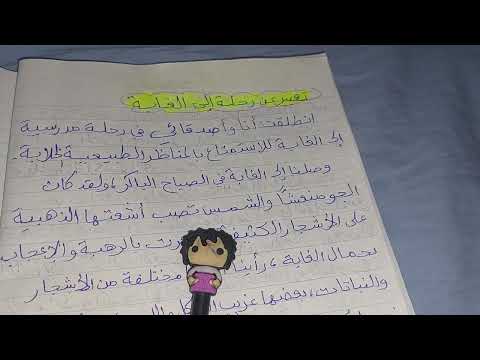 تعبير عن رحلة إلى الغابة
انطلقت أنا وأصدقائي في رحلة مدرسية
إلى الغابة للاستمتاع بالمناظر الطبيعية
وصلنا إلى الغابة في الصباح الباكر، ولقد كان
الجو منعشاً والشمس تصب أشعتها الذهبية
على الأشجار الكثيفة بالرهبة والإعجاب
بجمال الغابة، رأينا مختلفة من الأشجار
والنباتات، بعضها غريب